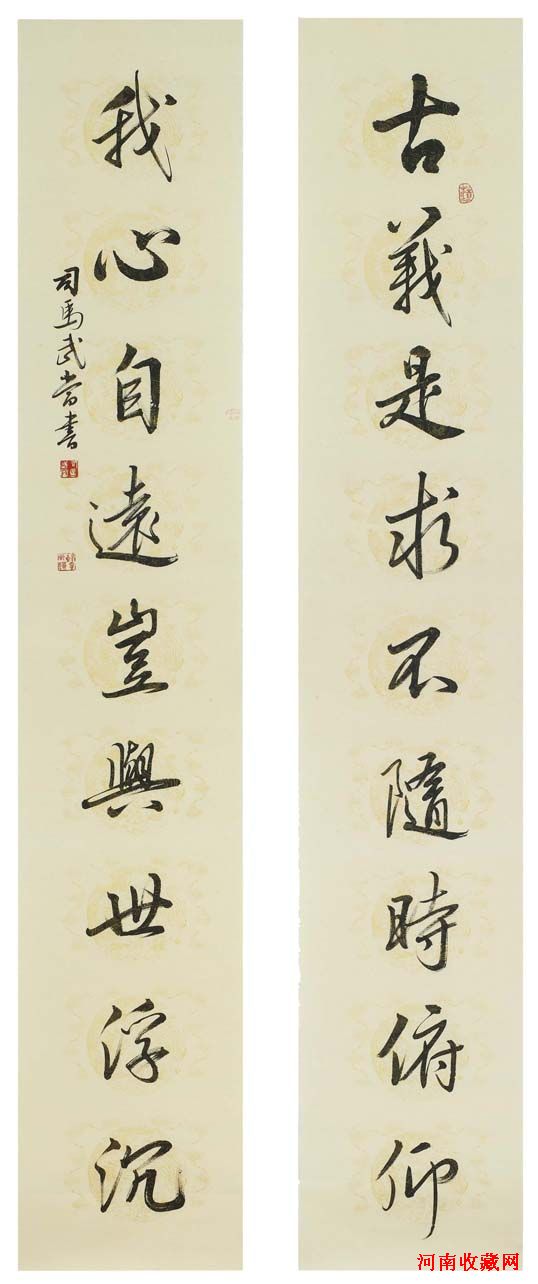 古義是求不隨時俯仰
我心自遠豈與世浮沉
司馬武當書
河南收藏网